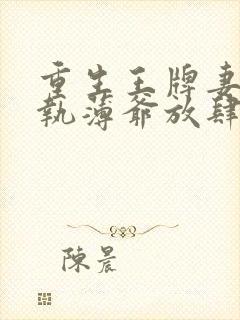 重生王牌妻
執薄爺放肆
陳晨